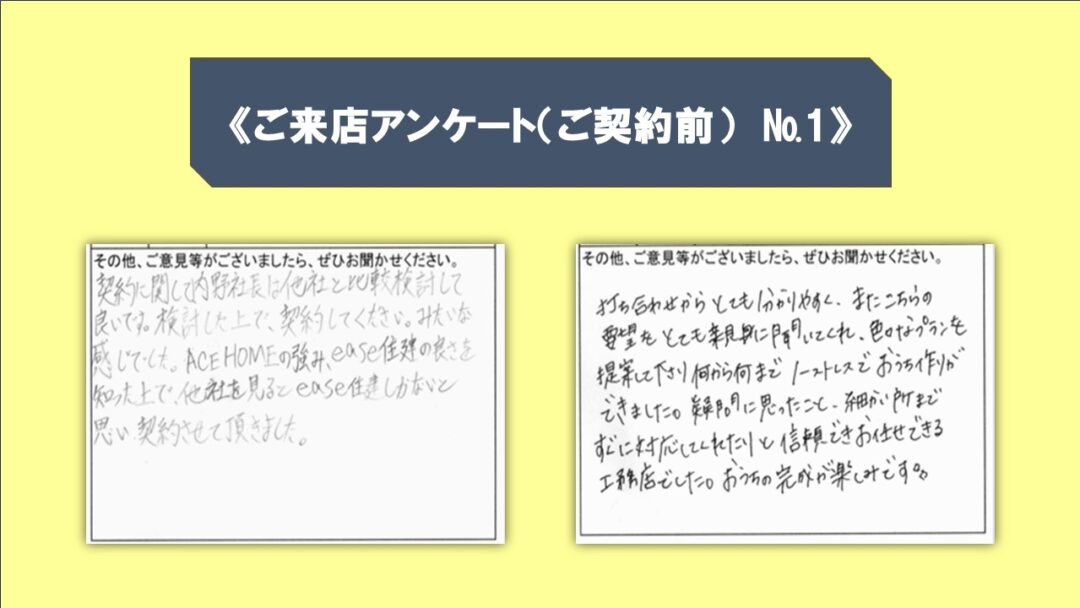 《ご来店アンケート(ご契約前) №1》
その他、ご意見等がございましたら、ぜひお聞かせください。
契約に関して内野社長は他社と比較検討して
良いです。検討した上で、契約してください。みたいな
感じでした。ACE HOMEの強み、ease住建の良さを
知った上で、他社を見るとease住建しかないと
思い、契約させて頂きました。
その他、ご意見等がございましたら、ぜひお聞かせください。
打ち合わせからとても分かりやすく、またこちらの
要望をとても親身に聞いてくれ、色々なプランを
提案して下さり何から何までノーストレスでおうち作りが
できました。疑問に思ったこと、細かい所まで
すぐに対応してくれたりと信頼できお任せできる
工務店でした。おうちの完成が楽しみです。